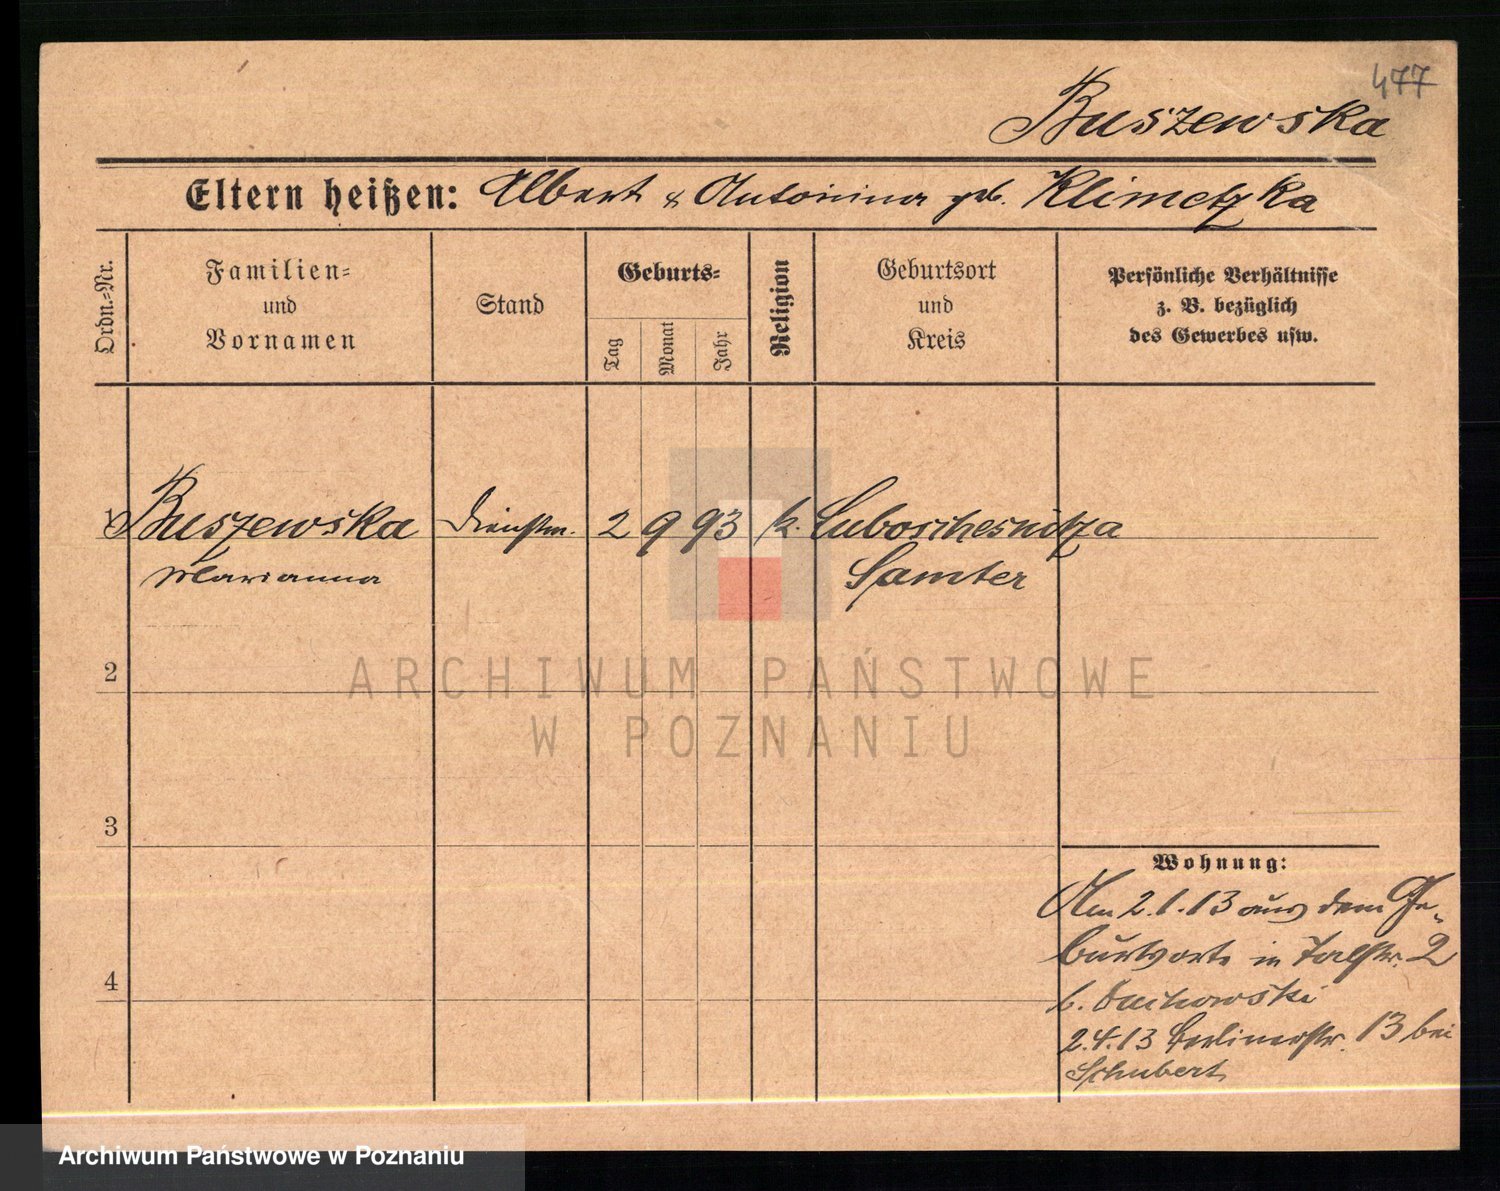 477
Buszewska
Eltern heißen: Albert & Antonina geb. Klimetzka
Ordn.=Nr.
Familien=
und
Vornamen
Stand
Geburts=
Tag
Monat
Jahr
Religion
Geburtsort
und
Kreis
Persönliche Verhältnisse
z. B. bezüglich
des Gewerbes usw.
1 Buszewska Dienstm. 2 9 93 k. Luboschesnitza
Marianna Samter
2
3
4
Wohnung:
Am 2.1.13 aus dem Ge-
burtsorte in Talstr. 2
b.
2.4.13 Berlinerstr. 13 bei
Schubert
ARCHIWUM PAŃSTWOWE
W POZNANIU
Archiwum Państwowe w Poznaniu